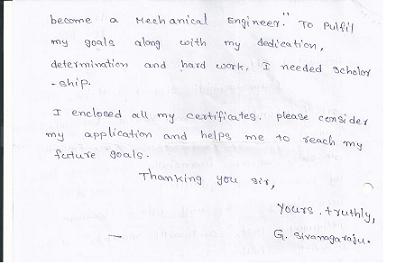 become a Mechanical Engineer." To Pulfil
my goals along with my dedication,
determination and hard work, I needed scholar
-ship.
I enclosed all my certificates. please consider
my application and helps me to reach my
future goals.
Thanking you sir,
yours. truthly,
G. Sivanagaraju.